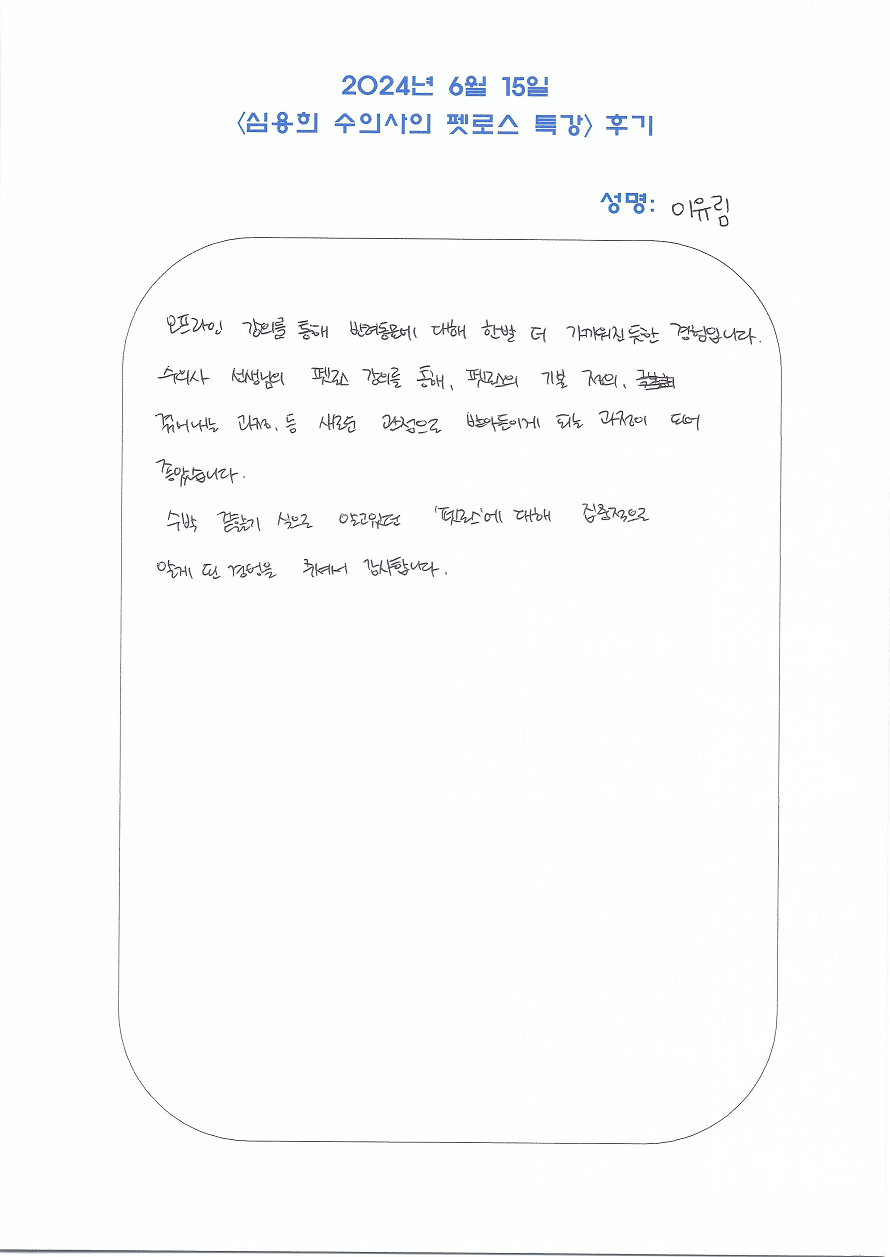 2024년 6월 15일
<심용희 수의사의 펫로스 특강> 후기
성명: 이유림
오프라인 강의를 통해 반려동물에 대해 한발 더 가까워진듯한 경험입니다.
수의사 선생님의 펫로스 강의를 통해, 펫로스의 기본 정의,
겪어나는 과정, 등 새로운 관점으로 받아들이게 되는 과정이 되어
좋았습니다.
수박 겉핥기 식으로 알고있던 '펫로스'에 대해 집중적으로
알게 된 경험을 감사합니다.